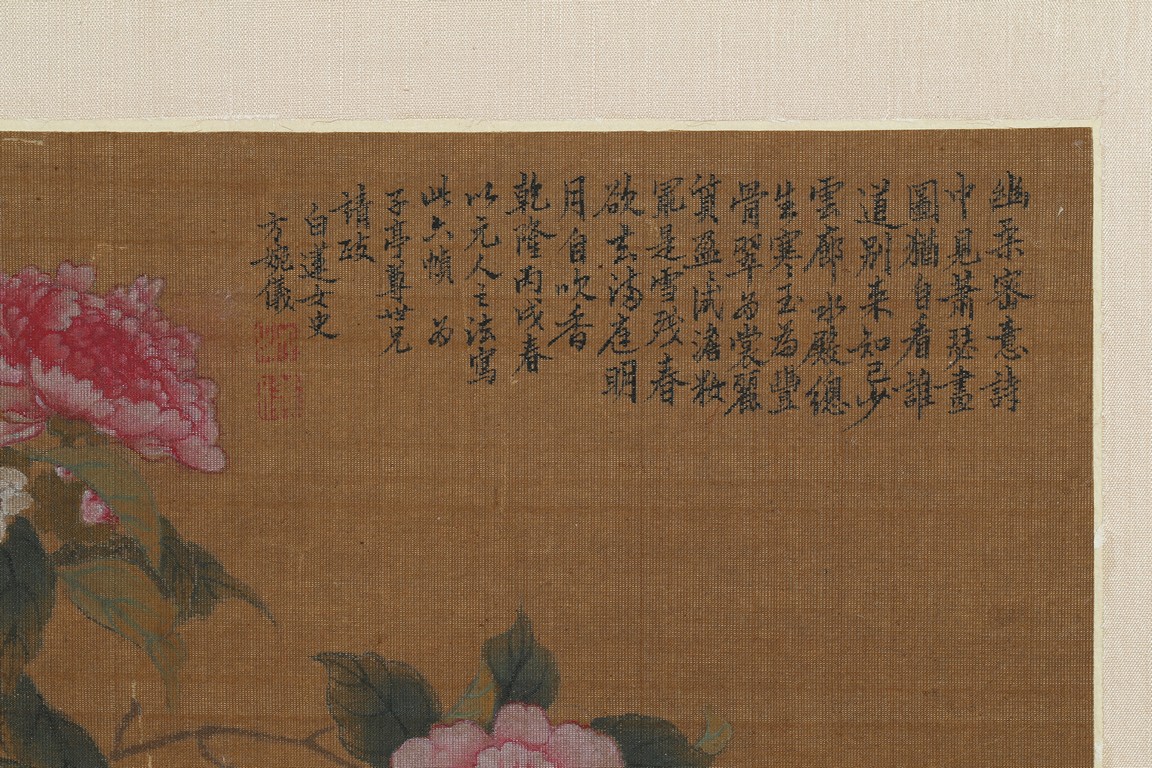 幽柔密意詩
中見蕭瑟畫
圖猶自看誰
道別來知己少
雲廊水殿總
生寒〻玉為豐
骨翠為裳麗
質盈〻試澹妝
罷是雪殘春
欲去滿庭明
月自吹香
乾隆丙戌春
以元人之法寫
此六幀為
子亭尊世兄
請政
白蓮女史
方婉儀